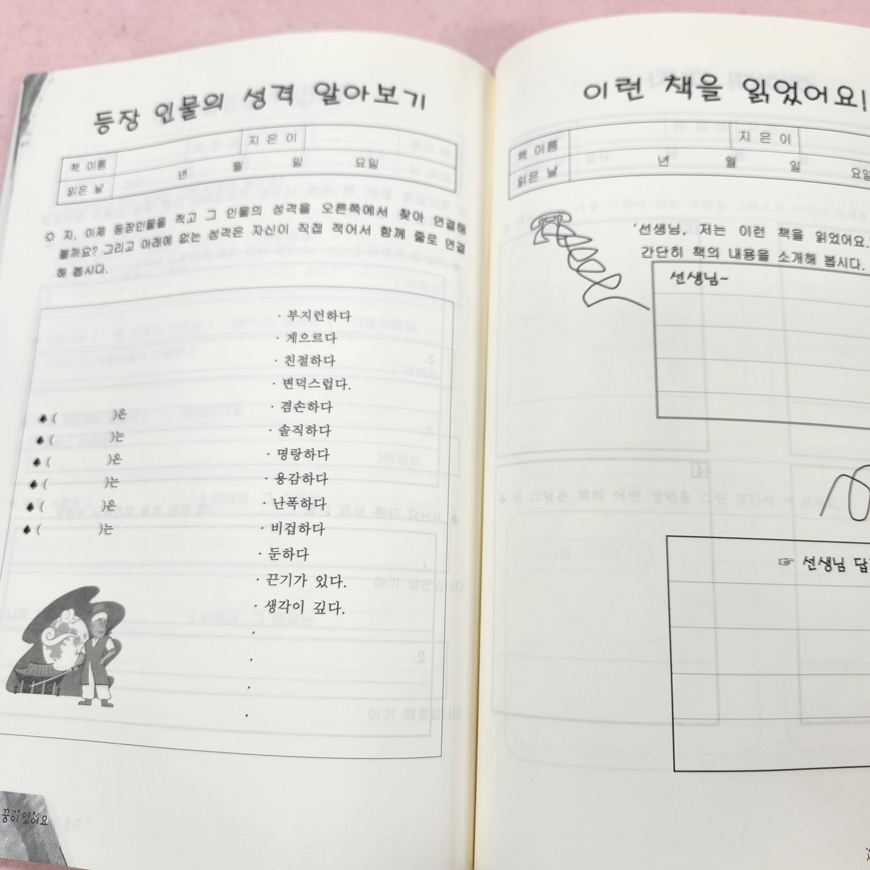 등장 인물의 성격 알아보기
책 이름 지 은 이
읽은 날 년 월 일 요일
자, 이제 등장인물을 적고 그 인물의 성격을 오른쪽에서 찾아 연결해
볼까요? 그리고 아래에 없는 성격은 자신이 직접 적어서 함께 줄로 연결
해 봅시다.
· 부지런하다
· 게으르다
· 친절하다
· 변덕스럽다.
· 겸손하다
· 솔직하다
· 명랑하다
· 용감하다
· 난폭하다
· 비겁하다
· 둔하다
· 끈기가 있다.
· 생각이 깊다.
·
·
·
·
♠ ( )은
♠ ( )는
♠ ( )은
♠ ( )는
♠ ( )은
♠ ( )는
꿈이 있어요
이런 책을 읽었어요!
책 이름 지 은 이
읽은 날 년 월 일 요일
'선생님, 저는 이런 책을 읽었어요.
간단히 책의 내용을 소개해 봅시다.
선생님~
☞ 선생님 답